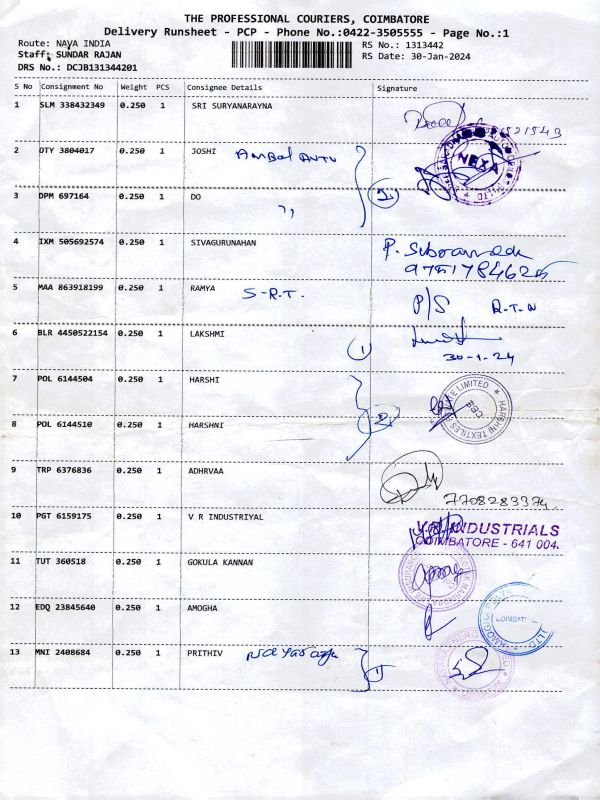 THE PROFESSIONAL COURIERS, COIMBATORE
Delivery Runsheet - PCP - Phone No.:0422-3505555 - Page No.:1
Route: NAVA INDIA
Staff: SUNDAR RAJAN
DRS No.: DCJB131344201
RS No.: 1313442
RS Date: 30-Jan-2024
S No Consignment No Weight PCS Consignee Details Signature
1 SLM 338432349 0.250 1 SRI SURYANARAYNA
2 DTY 3804017 0.250 1 JOSHI Ambal Auto
NEXA
3 DPM 697164 0.250 1 DO ,, 2
4 IXM 505692574 0.250 1 SIVAGURUNAHAN
5 MAA 863918199 0.250 1 RAMYA S-R.T. P/S R.T.N
6 BLR 4450522154 0.250 1 LAKSHMI 1
30-1-24
7 POL 6144504 0.250 1 HARSHI
HARSHNI TEXTILES LIMITED
8 POL 6144510 0.250 1 HARSHNI 2
9 TRP 6376836 0.250 1 ADHRVAA
7708283374
10 PGT 6159175 0.250 1 V R INDUSTRIYAL
V.R. INDUSTRIALS
COIMBATORE - 641 004.
11 TUT 360518 0.250 1 GOKULA KANNAN
12 EDQ 23845640 0.250 1 AMOGHA
13 MNI 2408684 0.250 1 PRITHIV 1